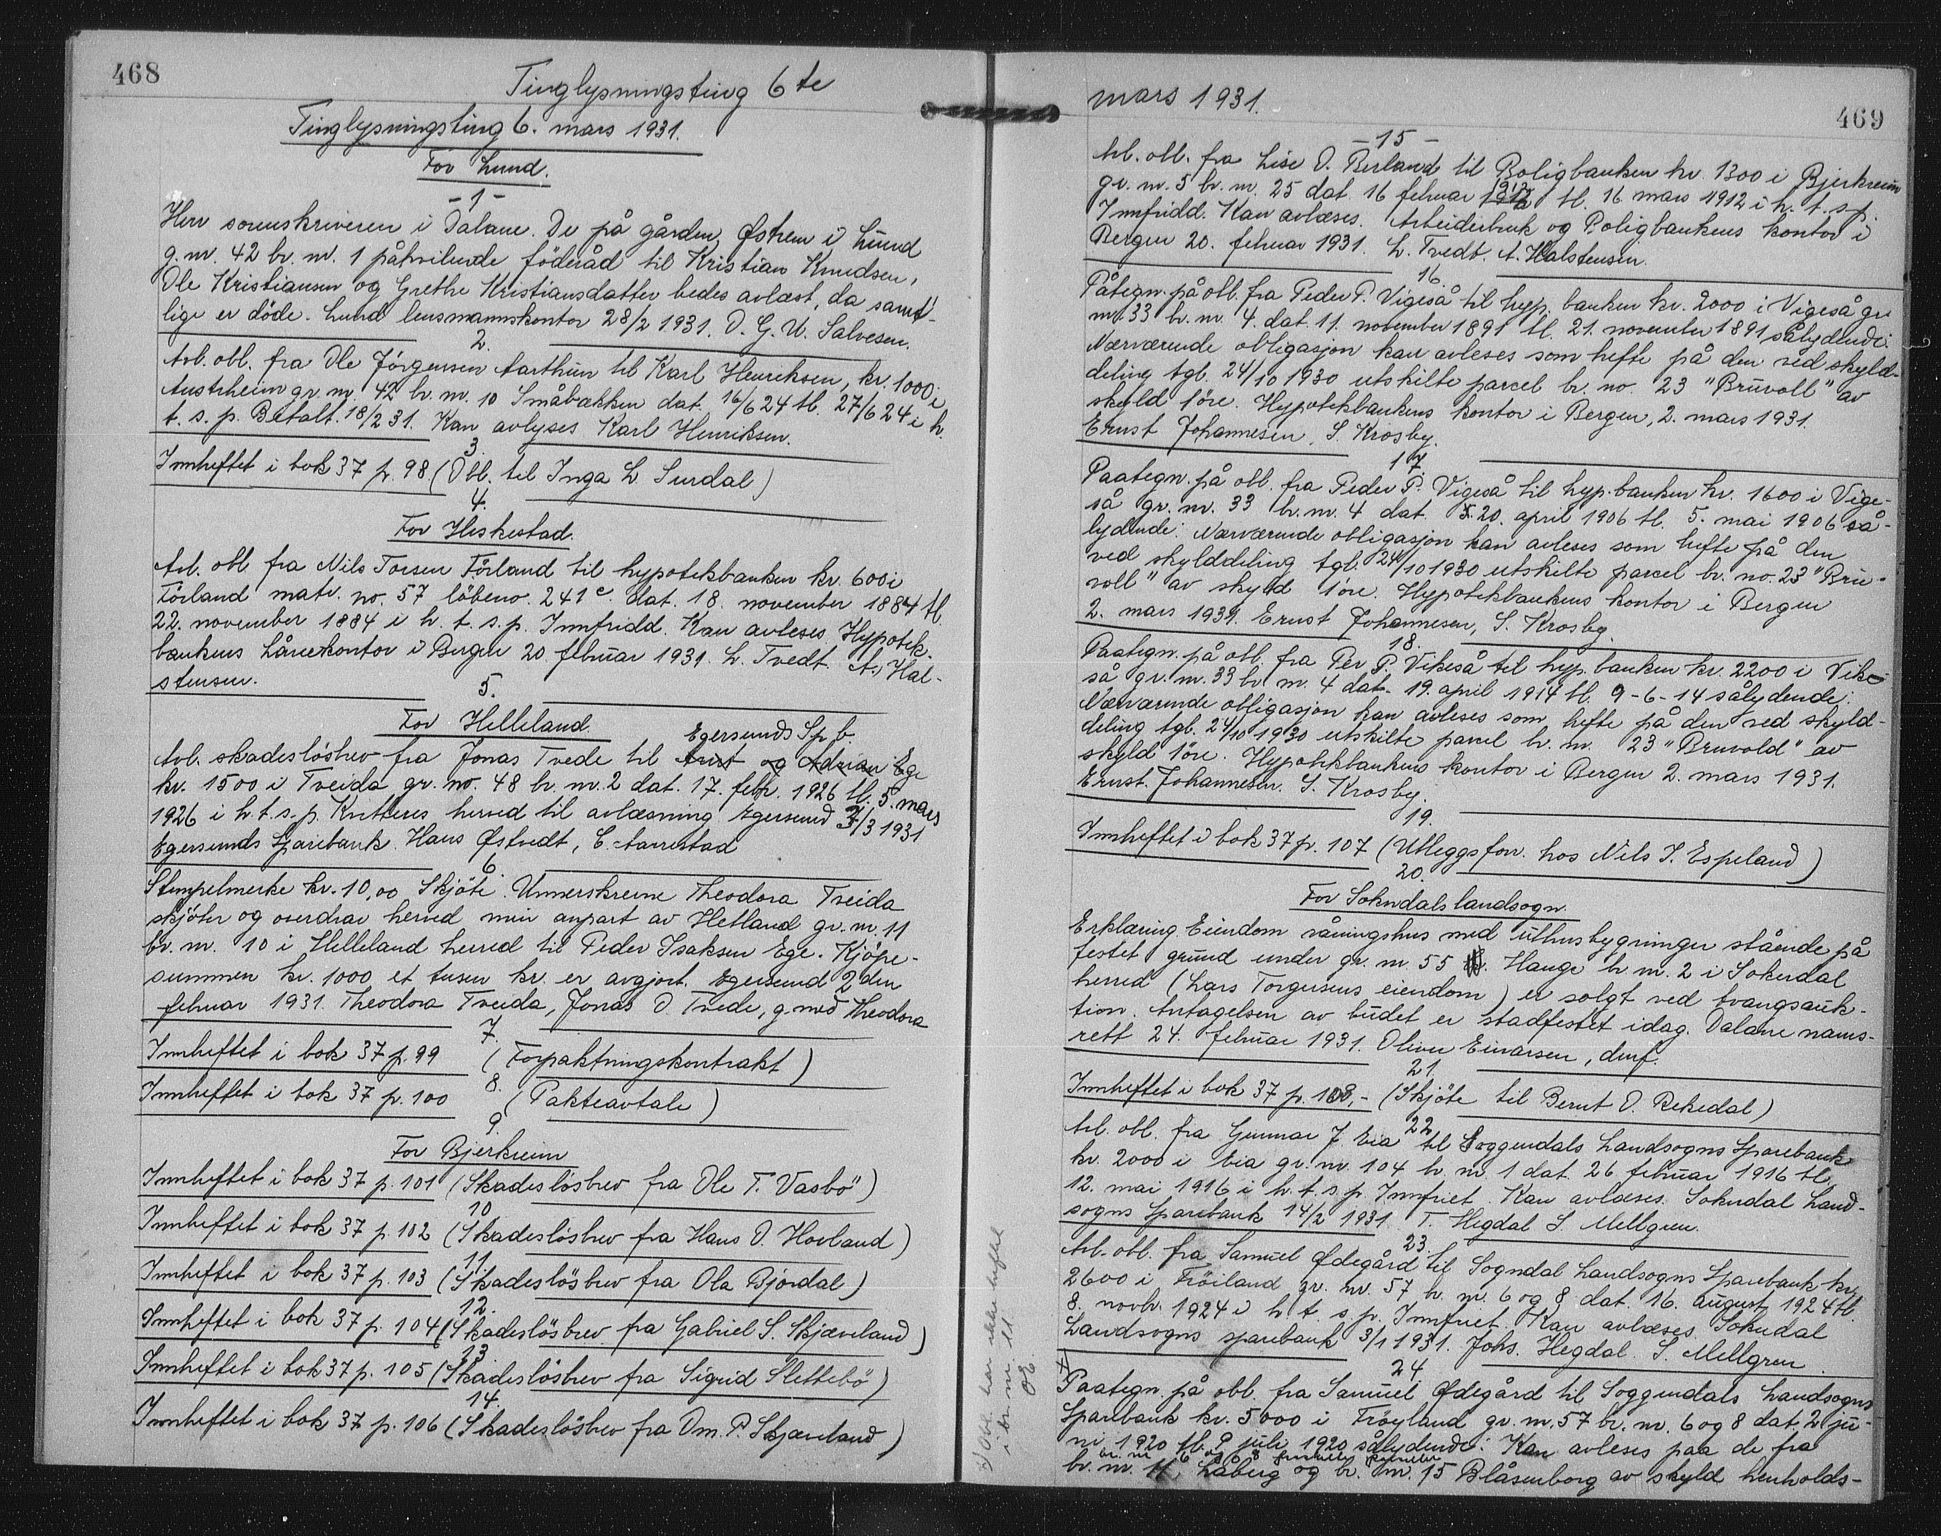 468
Tinglysningsting 6te
Tinglysningsting 6. mars 1931.
For Lund.
-1-
Herr sorenskriveren i Dalane. De på gården Østrem i Lund
g.nr. 42 br. nr. 1 påhvilende föderåd til Kristian Knudsen,
Ole Kristiansen og Grethe Kristiansdatter bedes avlæst, da samt-
lige er döde. Lund lensmannskontor 28/2 1931. O. G. W. Salvesen.
2.
Avl. obl. fra Ole Jørgensen Aarthun til Karl Henriksen, kr. 1000 i
Austrheim gr. nr. 42 br. nr. 10 Småbækken dat. 16/6 24 tl. 27/6 24 i h.
t. s. p. Betalt. 18/2 31. Kan avlyses Karl Henriksen.
3.
Innheftet i bok 37 p. 98. (Obl. til Inga L Surdal)
4.
For Heskestad.
Avl. obl. fra Nils Toresen Förland til hypotekbanken kr. 600 i
Förland matr. no. 57 löbeno. 241c. dat. 18. november 1884 tl.
22. november 1884 i h. t. s. p. Innfridd. Kan avleses. Hypotek-
bankens Lånekontor i Bergen 20 februar 1931. L. Tvedt. A. Hal-
stensen.
5.
For Helleland
Egersunds Sp b
Avl. skadeslösbrev fra Jonas Tvede til Arnt og Adrian Ege
kr. 1500 i Tveida gr. no. 48 br. nr. 2 dat. 17. febr. 1926 tl. 5. mars
1926 i h. t. s. p. Kvitteres herved til avlæsning Egersund 3/3 1931
Egersunds Sparebank. Hans Østvedt, E. Aarrestad
6
Stempelmerke kr. 10,00 Skjöte. Unnerskrevne Theodora Tveida
skjöter og overdrar herved min anpart av Hetland gr. nr. 11
br. nr. 10 i Helleland herred til Peder Isaksen Ege. Kjöpe-
summen kr. 1000 et tusen kr. er avgjort. Egersund 2 den
februar 1931. Theodora Tveida, Jonas O Tvede, g. med Theodora
7.
Innheftet i bok 37 p. 99 (Forpaktningskontrakt)
8.
Innheftet i bok 37 p. 100 (Pakteavtale)
9.
For Bjerkreim
Innheftet i bok 37 p. 101 (Skadeslösbrev fra Ole T. Vasbö)
10
Innheftet i bok 37 p. 102 (Skadeslösbrev fra Hans O. Hovland)
11.
Innheftet i bok 37 p. 103 (Skadeslösbrev fra Ola Bjordal)
12.
Innheftet i bok 37 p. 104 (Skadeslösbrev fra Gabriel S. Skjæveland)
13
Innheftet i bok 37 p. 105 (Skadeslösbrev fra Sigrid Slettebö)
14.
Innheftet i bok 37 p. 106 (Skadeslösbrev fra Om. P. Skjæveland)
469
mars 1931.
-15-
Avl. obl. fra Lise O. Berland til Boligbanken kr. 1300 i Bjerkreim
gr. nr. 5 br. nr. 25 dat 16 februar 1912 tl. 16 mars 1912 i h. t. s. p.
Innfridd. Kan avlæses. Arbeiderbruk og Boligbankens kontor i
Bergen 20. februar 1931. L. Tvedt. A. Halstensen.
16.
Påtegn. på obl. fra Peder P. Vigeså til hyp. banken kr. 2000 i Vigeså gr.
nr. 33 br. nr. 4. dat. 11. november 1891 tl. 21. november 1891 sålydende:
Nærværende obligasjon kan avleses som hefte på den ved skyld-
deling tgl. 24/10 1930 utskilte parcel br. no. 23 "Bruvoll" av
skyld 1öre. Hypotekbankens kontor i Bergen, 2. mars 1931.
Ernst Johannesen, S. Krosby.
17.
Paategn. på obl. fra Peder P. Vigeså til hyp. banken kr. 1600 i Vige-
så gr. nr. 33 br. nr. 4 dat. 20. april 1906 tl. 5. mai 1906 så-
lydende: Nærværende obligasjon kan avleses som hefte på den
ved skylddeling tgl. 24/10 1930 utskilte parcel br. no. 23 "Bru-
voll" av skyld 1öre. Hypotekbankens kontor i Bergen
2. mars 1931. Ernst Johannesen, S. Krosby.
18.
Paategn. på obl. fra Per P. Vikeså til hyp. banken kr. 2200 i Vike-
så gr. nr. 33 br nr. 4 dat. 19. april 1914 tl. 9-6-14 sålydende:
Nærværende obligasjon kan avleses som hefte på den ved skyld-
deling tgl. 24/10 1930 utskilte parcel br. nr. 23 "Bruvold" av
skyld 1öre. Hypotekbankens kontor i Bergen 2. mars 1931.
Ernst. Johannesen. S. Krosby.
19.
Innheftet i bok 37 p. 107 (Utleggsforr. hos Nils S. Espeland)
20.
For Sokndals landsogn.
Erklæring Eiendom våningshus med uthusbygninger stående på
festet grund under gr. nr 55 Hauge br nr. 2 i Sokndal
herred (Lars Torgersens eiendom) er solgt ved tvangsauk-
tion. Antagelsen av budet er stadfestet idag. Dalane nams-
rett 24. februar 1931. Oliver Einarsen, dmf.
21
Innheftet i bok 37 p. 108,- (Skjöte til Bernt O. Rekedal)
22
Avl. obl. fra Gunnar J Eia til Soggendals Landsogns Sparebank
kr. 2000 i Eia gr. nr. 104 br. nr. 1 dat 26 februar 1916 tl.
12. mai 1916 i h. t. s. p. Innfriet. Kan avlæses. Sokndal Land-
sogns Sparebank 14/2 1931. T. Hegdal S. Mellgren.
23
Avl. obl. fra Samuel Ødegård til Sogndal Landsogns Sparebank kr.
2600 i Fröiland gr. nr. 57 br. nr. 6 og 8 dat. 16. august 1924 tl.
8. novbr. 1924 i h. t. s. p. Innfriet. Kan avlæses. Sokndal
Landsogns sparebank 3/1 1931. Johs. Hegdal. S. Mellgren
24
Paategn. på obl. fra Samuel Ødegård til Soggendals Landsogns
Sparebank kr. 5000 i Fröyland gr. nr. 57 br. nr. 6 og 8 dat. 2 ju-
ni 1920 tl. 9 juli 1920 sålydende: Kan avleses paa de fra
br. nr. 6 og 8 fraskilte
br. nr. 11 Låberg og br. nr. 15 Blåsenborg av skyld henholds-
x) Obl. har ikke heftet
i br. nr. 11.
OE